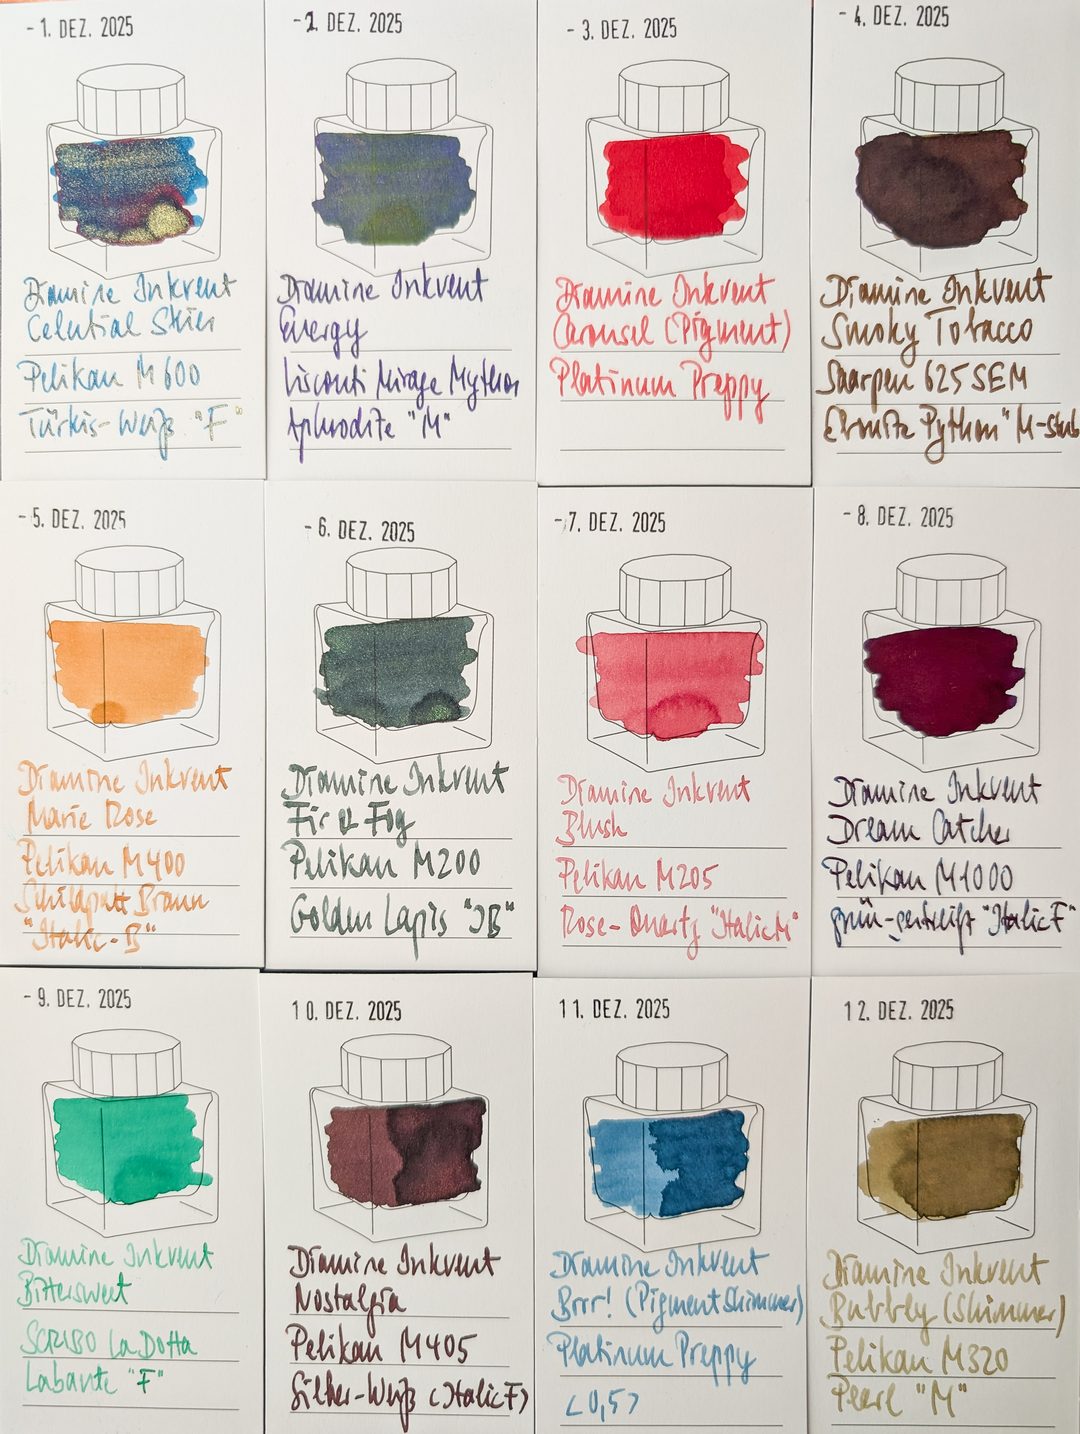 - 1. DEZ. 2025
Diamine Inkvent
Celestial Skies
Pelikan M600
Türkis-Weiß "F"
- 2. DEZ. 2025
Diamine Inkvent
Energy
Visconti Mirage Mythos
Aphrodite "M"
- 3. DEZ. 2025
Diamine Inkvent
Carousel (Pigment)
Platinum Preppy
- 4. DEZ. 2025
Diamine Inkvent
Smoky Tobacco
625 SEM
Python "M-stub
- 5. DEZ. 2025
Diamine Inkvent
Marie Rose
Pelikan M400
Schildpatt Braun
"Italic-B"
- 6. DEZ. 2025
Diamine Inkvent
Fir & Fog
Pelikan M200
Golden Lapis "IB"
- 7. DEZ. 2025
Diamine Inkvent
Blush
Pelikan M205
Rose-Quartz "Italic M"
- 8. DEZ. 2025
Diamine Inkvent
Dream Catcher
Pelikan M1000
grün-gestreift "Italic F"
- 9. DEZ. 2025
Diamine Inkvent
Bittersweet
SCRIBO La Dotta
Labante "F"
10. DEZ. 2025
Diamine Inkvent
Nostalgia
Pelikan M405
Silber-Weiß (Italic F)
11. DEZ. 2025
Diamine Inkvent
Brrr! (Pigment Shimmer)
Platinum Preppy
<0,5>
12. DEZ. 2025
Diamine Inkvent
Bubbly (Shimmer)
Pelikan M320
Pearl "M"